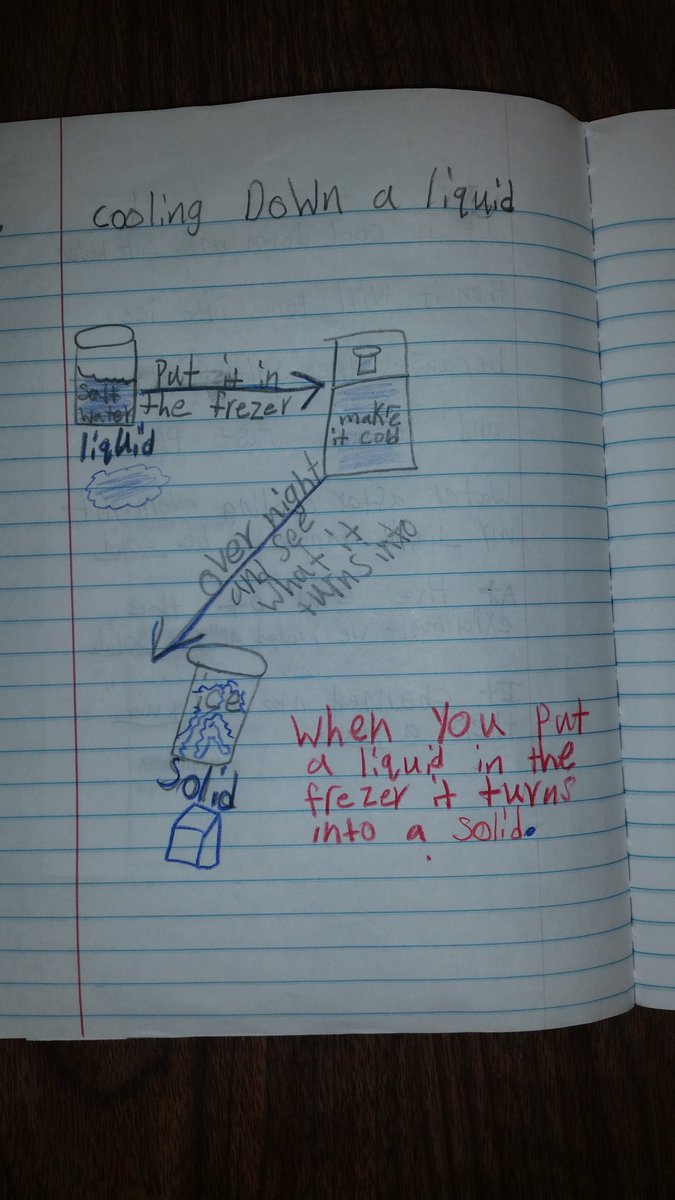 cooling DoWn a liquid
Salt
Water
liquid
Put it in
the frezer
make
it cold
over night
and see
what it
turns into
ice
Solid
When You Put
a liquid in the
frezer it turns
into a solid.